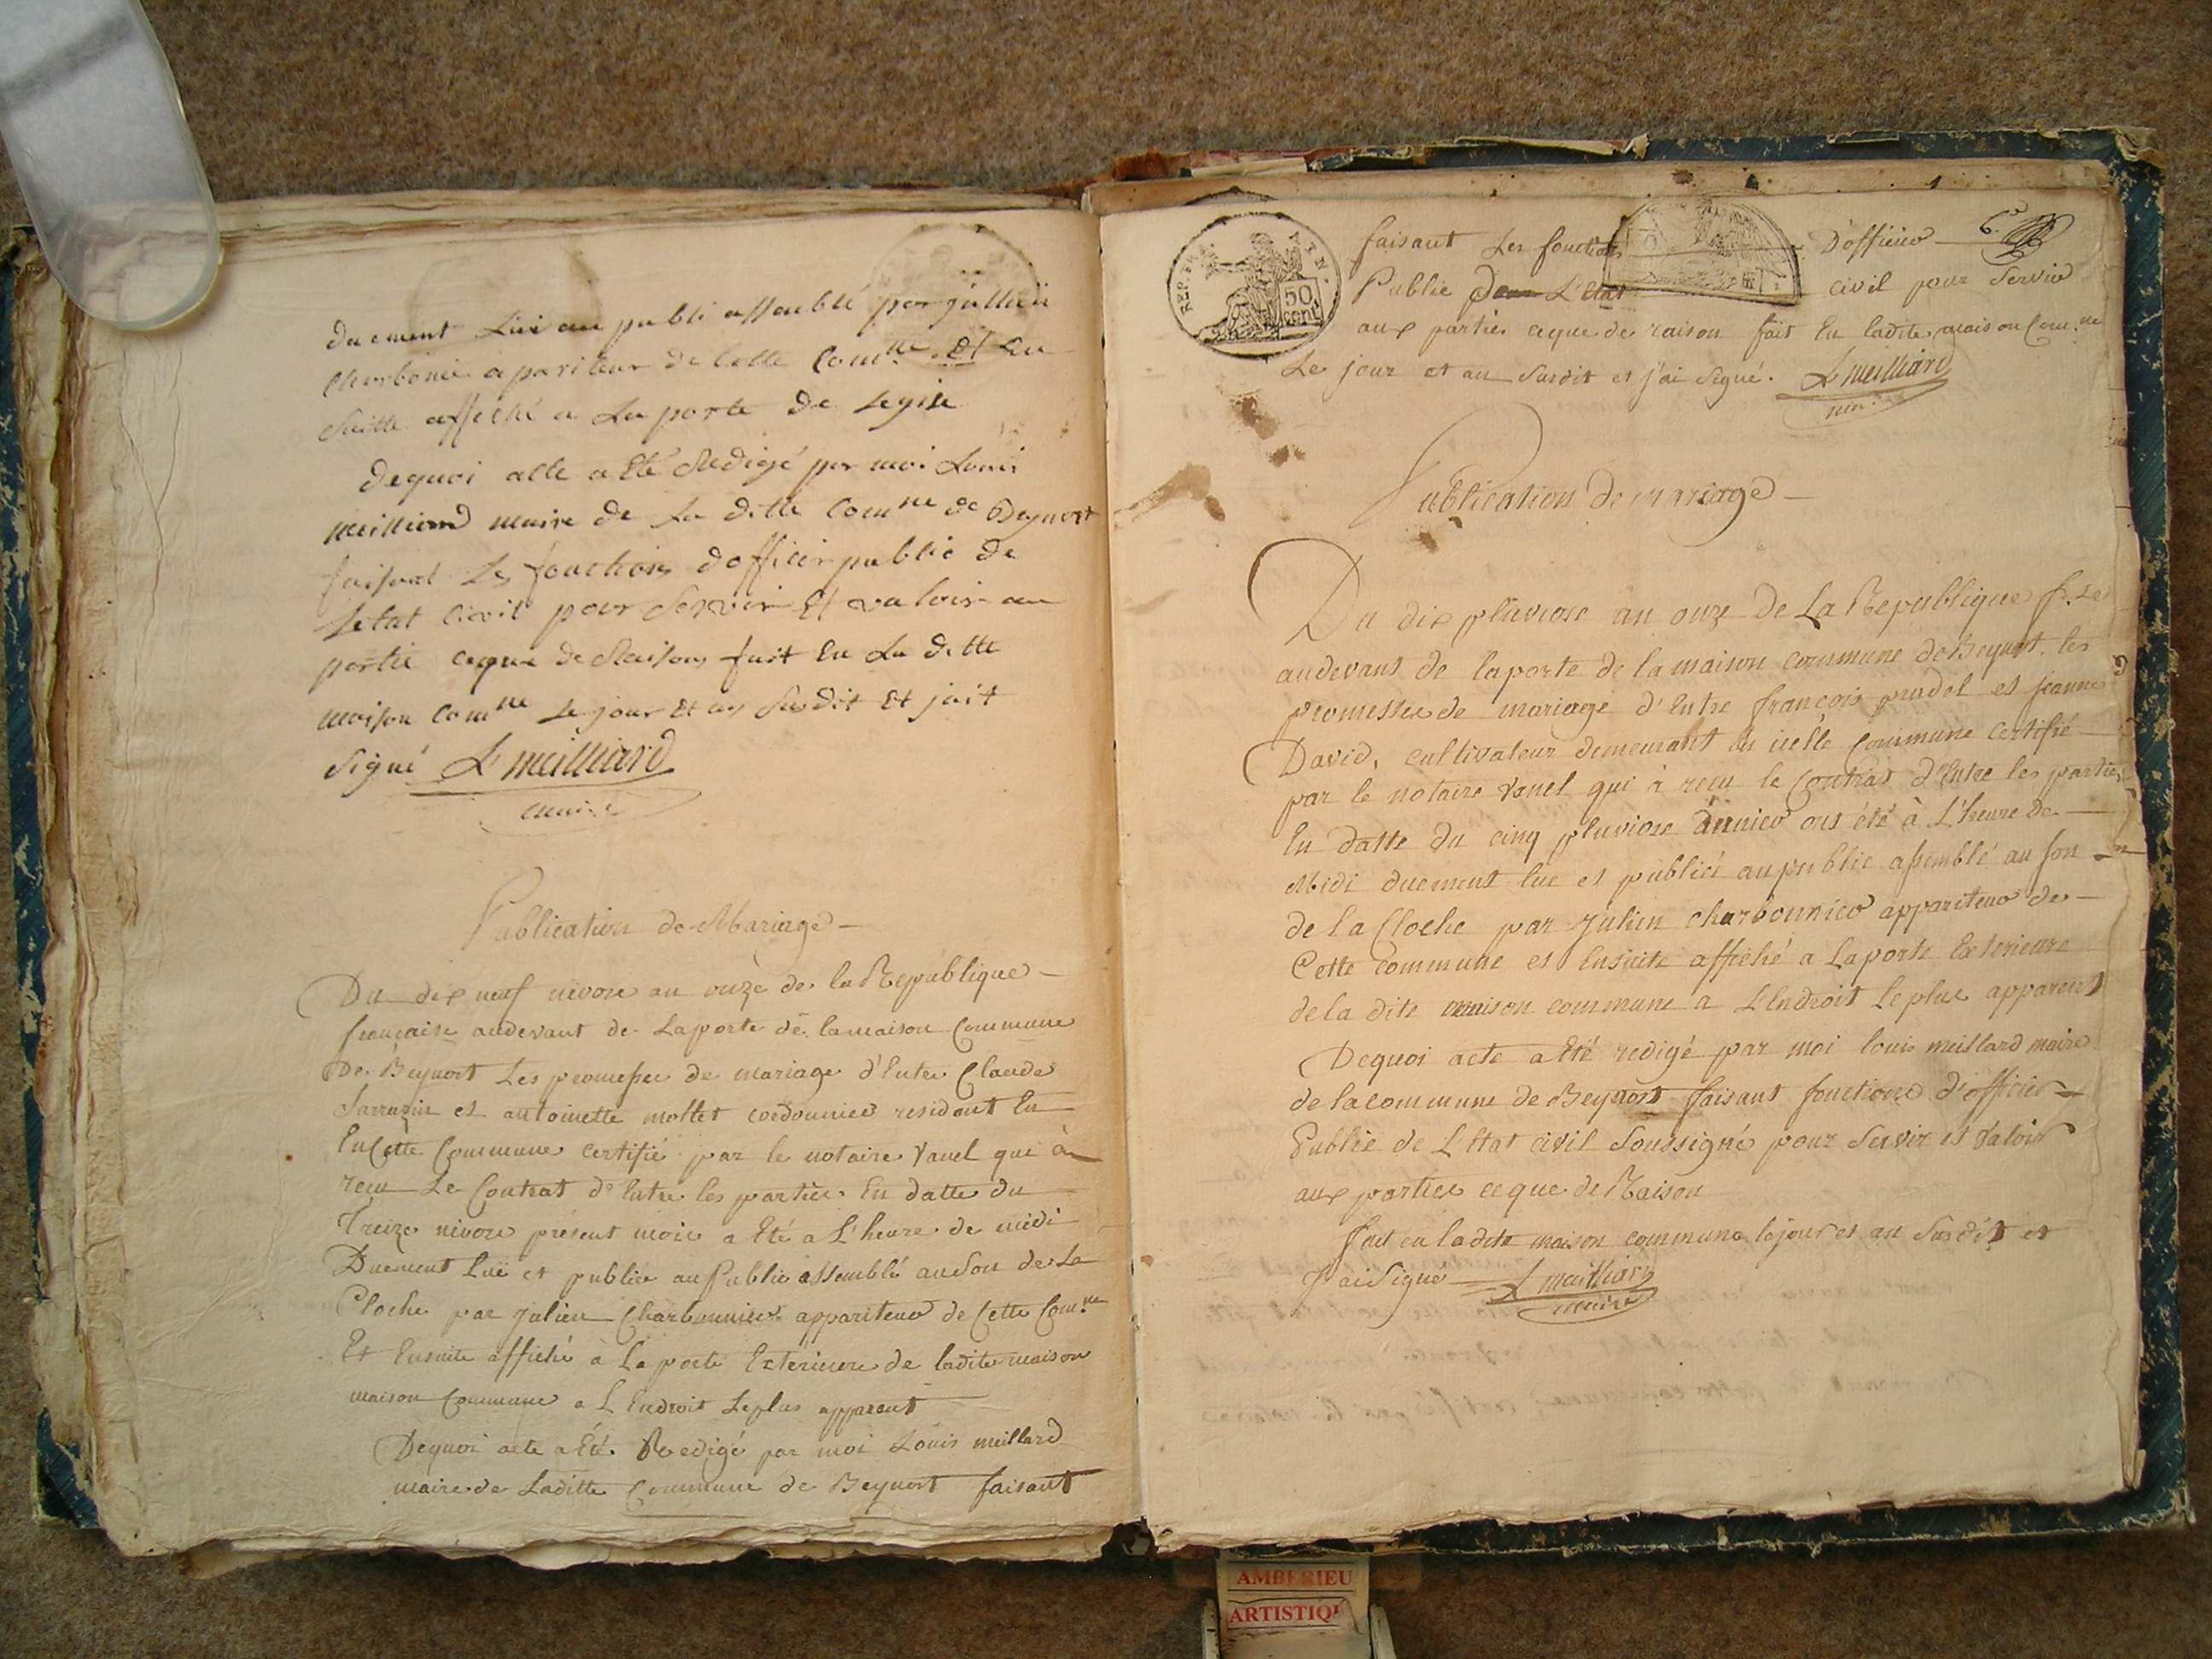 duement Luë au publi assemblé par jullien
Charbonié apariteur de Cette Comne Et En
Suitte affiché a La porte de Legise
Dequoi acte a Eté Redigé par moi Louis
Meilliard maire de La ditte Comne de Beynost
faisant Les fonctions dofficier public de
Letat Civil pour Servir Et valoir au
partie ceque de Raison fait En La ditte
maison Comne Le jour Et an Susdit Et jait
Signé L. meilliard
maire
Publication de Mariage
Du dix neuf nivose an onze de la République
française audevant de Laporte de lamaison Commune
De Beynost Les promesses de mariage d'Entre Claude
Sarrazin et antoinette mollet cordonnier residant En
En Cette Commune certifié par le notaire Vanel qui à
recu Le Contrat d'Entre les parties En datte du
Treize nivose présent mois a Eté a L'heure de midi
Duement Luë et publiée au Public assemblé auSon de La
Cloche par Julien Charbonnier appariteur de Cette Comne
Et Ensuite affiché à La porte Exterieure de ladite maison
maison Commune a L'Endroit Leplus apparent
Dequoi acte a Eté Redigé par moi Louis meillard
maire de Laditte Commune de Beynost faisant
faisant Les fonctions D'officier 6.
Public De L'Etat civil pour Servir
aux parties ceque de raison fait En ladite maison Comne
Le jour et an Susdit et j'ai Signé. L. meilliard
REP. FRA.
50 cent.
Publication De mariage
Du dix pluviose an onze de La Republique fse
audevant de laporte de la maison commune de Beynost les
promesses de mariage d'Entre françois prudel et jeanne
David, cultivateur demeurant en icelle Commune certifié
par le notaire Vanel qui à recu le Contrat d'Entre les parties
En datte du cinq pluviose ont été à L'heure de
Midi duement lue et publiée aupublic assemblé au son
de la Cloche par Julien charbonnier appariteur de
Cette commune et Ensuite affiché a Laporte Exterieure
de la dite maison commune a L'Endroit Leplus apparent
Dequoi acte a Eté redigé par moi louis meillard maire
de lacommune de Beynost faisant fonctions d'officier
Public de L'Etat civil Soussigné pour Servir et Valoir
aux parties ceque de Raison
fait en ladite maison commune lejour et an Susdit et
J'aiSigné L. meilliard
maire
AMBERIEU
ARTISTIQ